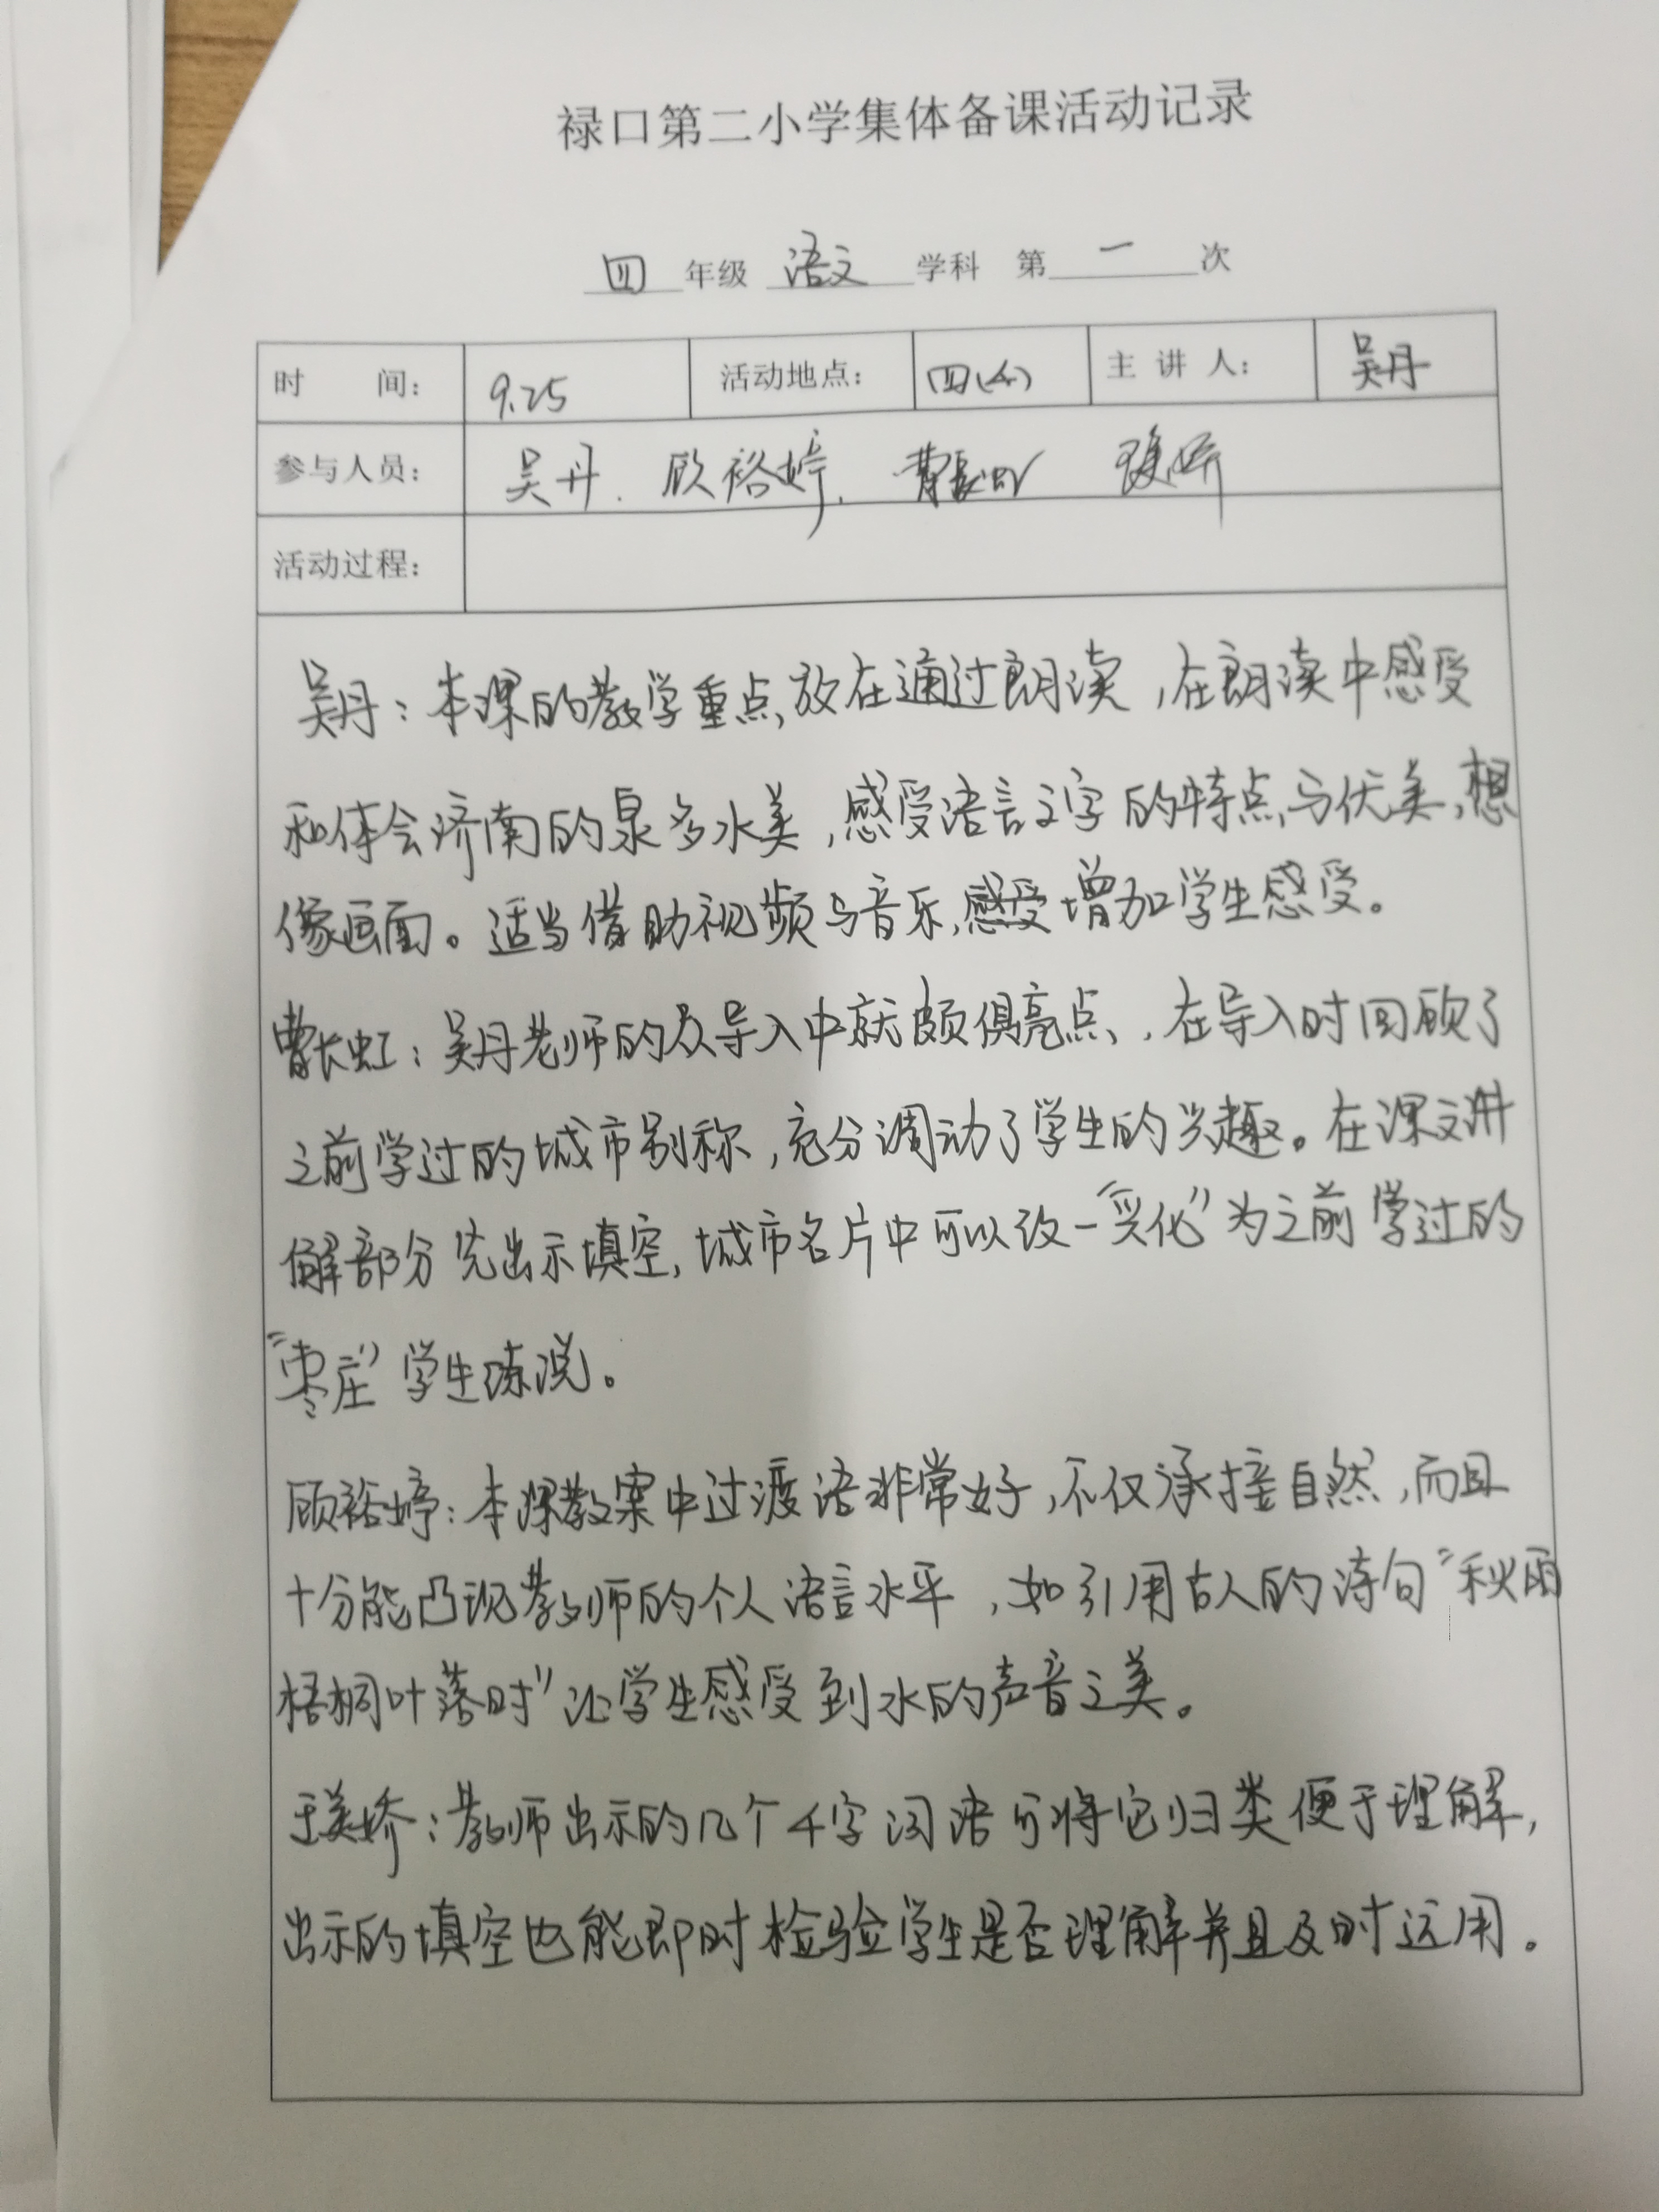 禄口第二小学集体备课活动记录
四 年级 语文 学科 第 一 次
时 间： 9.25 活动地点： 四(4) 主 讲 人： 吴丹
参与人员： 吴丹. 顾裕婷. 曹长虹 王美娇
活动过程：
吴丹：本课的教学重点,放在通过朗读,在朗读中感受
和体会济南的泉多水美,感受语言文字的特点与优美,想
像画面。适当借助视频与音乐,感受增加学生感受。
曹长虹：吴丹老师的从导入中就颇俱亮点,在导入时回顾了
之前学过的城市别称,充分调动了学生的兴趣。在课文讲
解部分先出示填空,城市名片中可以改一 为之前学过的
“枣庄”学生练说。
顾裕婷：本课教案中过渡语非常好,不仅承接自然,而且
十分能凸现教师的个人语言水平,如引用古人的诗句“秋雨
梧桐叶落时”让学生感受到水的声音之美。
王美娇：教师出示的几个4字词语可将它归类便于理解,
出示的填空也能即时检验学生是否理解并且及时运用。